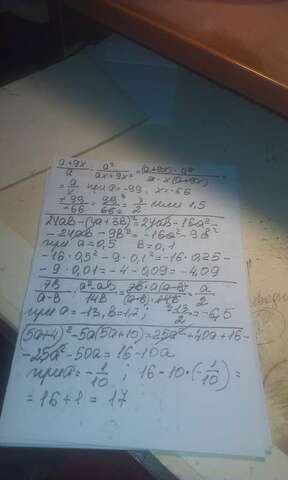 (a+9x)/a · a²/(ax+9x²) = (a+9x)·a²/(a·x(a+9x)) =
= a/x при a=-99, x=-66
+99/-66 = 99³/66² = 3/2 или 1.5
24ab-(4a+3b)²=24ab-16a²-
-24ab-9b²=-16a²-9b²
при a=0,5 b=0,1
-16·0,5²-9·0,1²=-16·0,25-
-9·0,01=-4-0,09=-4,09
7b/(a-b) · (a²-ab)/14b = 7b·a(a-b)/((a-b)·14b) = a/2
при a=-13, b=1,2; -13/2=-6,5
(5a+4)²-5a(5a+10)=25a²+40a+16-
-25a²-50a=16-10a
при a=-1/10; 16-10·(-1/10)=
=16+1=17